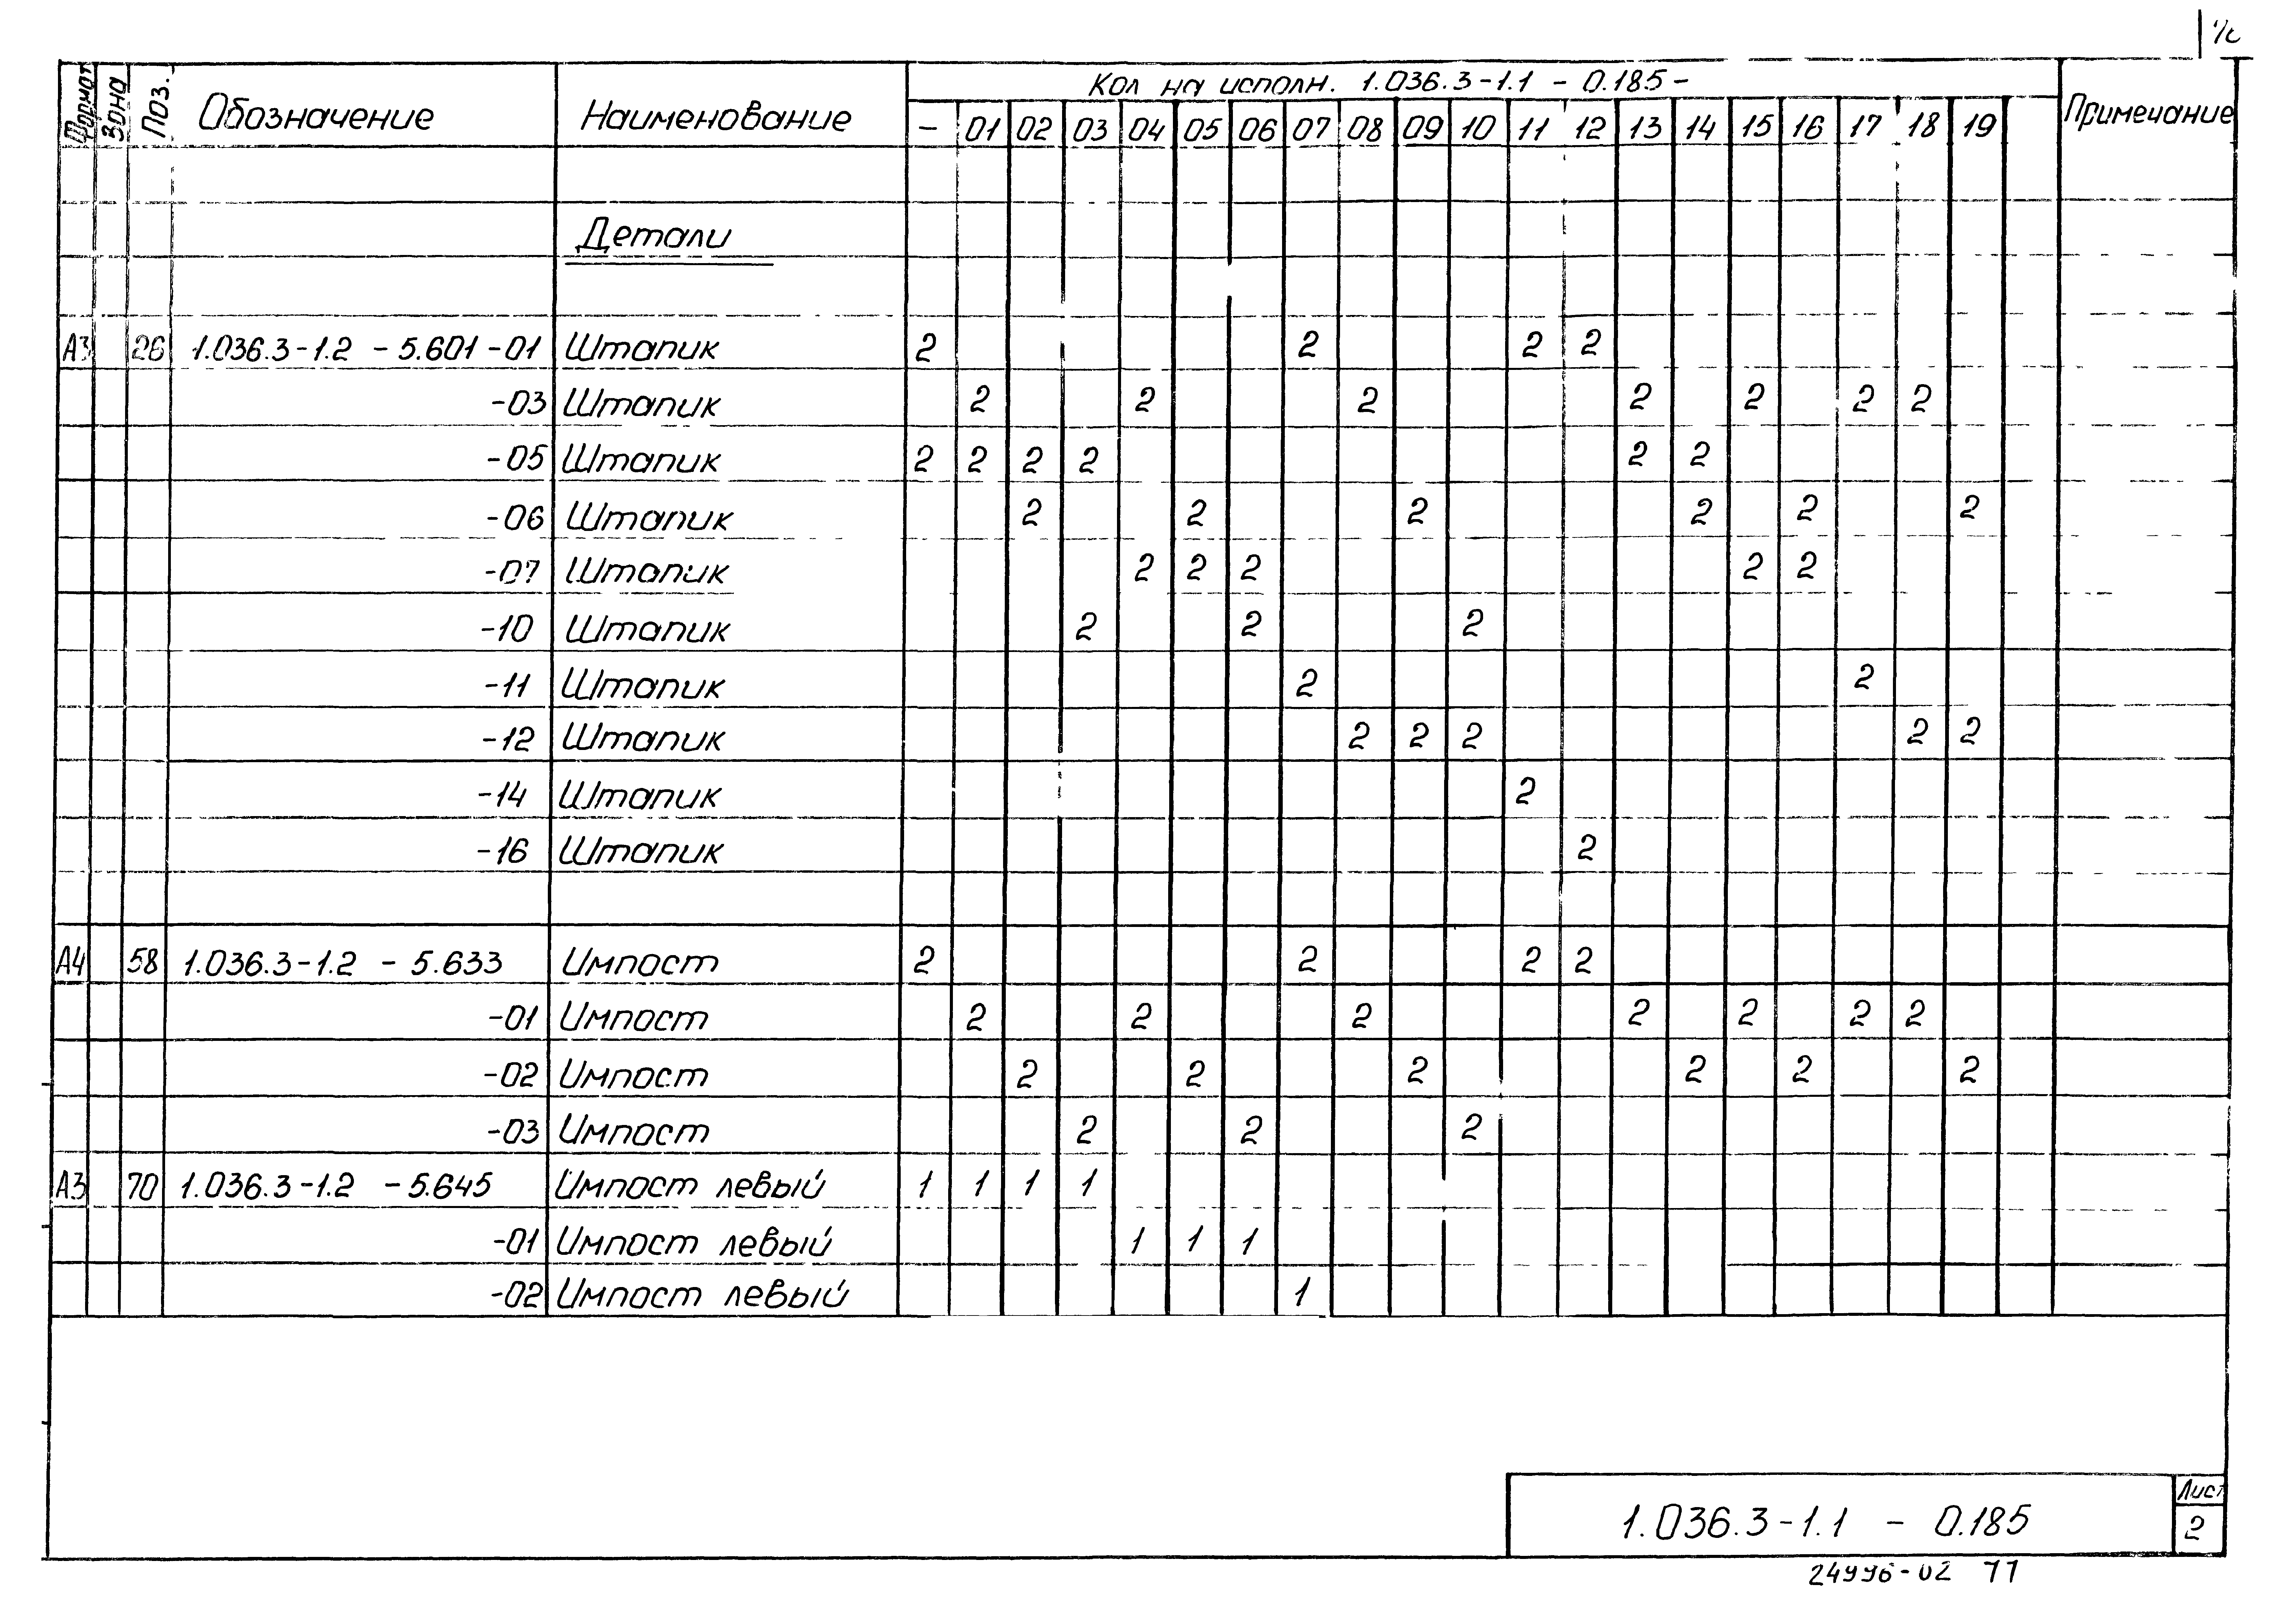 Формат Зона Поз. Обозначение Наименование Кол на исполн. 1.036.3-1.1 - 0.185- Примечание
- 01 02 03 04 05 06 07 08 09 10 11 12 13 14 15 16 17 18 19
Детали
А3 26 1.036.3-1.2 - 5.601-01 Штапик 2 2 2 2
-03 Штапик 2 2 2 2 2 2 2
-05 Штапик 2 2 2 2 2 2
-06 Штапик 2 2 2 2 2 2
-07 Штапик 2 2 2 2 2
-10 Штапик 2 2 2
-11 Штапик 2 2
-12 Штапик 2 2 2 2 2
-14 Штапик 2
-16 Штапик 2
А4 58 1.036.3-1.2 - 5.633 Импост 2 2 2 2
-01 Импост 2 2 2 2 2 2 2
-02 Импост 2 2 2 2 2 2
-03 Импост 2 2 2
А3 70 1.036.3-1.2 - 5.645 Импост левый 1 1 1 1
-01 Импост левый 1 1 1
-02 Импост левый 1
1.036.3-1.1 - 0.185
Лист
2
24996-02 11